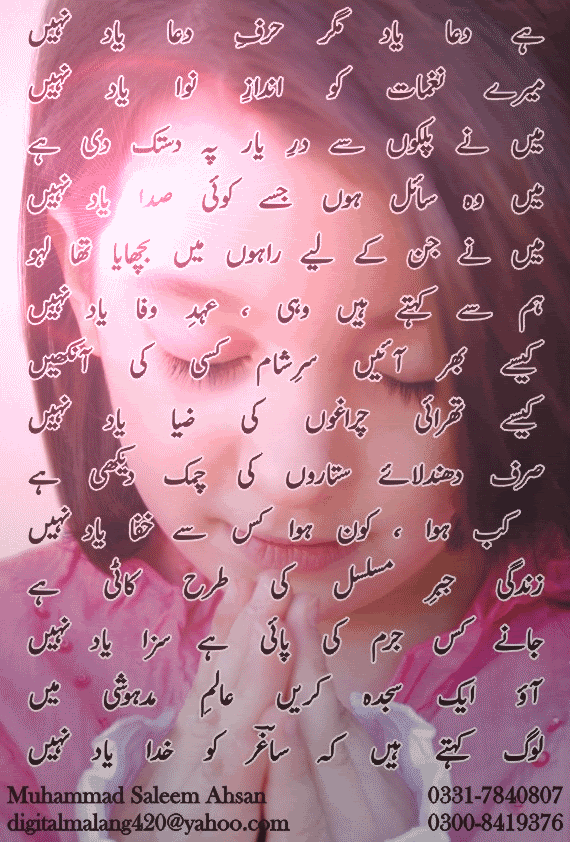 ہے دعا یاد مگر حرفِ دعا یاد نہیں
میرے نغمات کو اندازِ نوا یاد نہیں
میں نے پلکوں سے درِ یار پہ دستک دی ہے
میں وہ سائل ہوں جسے کوئی صدا یاد نہیں
میں نے جن کے لیے راہوں میں بچھایا تھا لہو
ہم سے کہتے ہیں وہی ، عہدِ وفا یاد نہیں
کیسے بھر آئیں سرِ شام کسی کی آنکھیں
کیسے تھرائی چراغوں کی ضیا یاد نہیں
صرف دھندلائے ستاروں کی چمک دیکھی ہے
کب ہوا ، کون ہوا کس سے خفا یاد نہیں
زندگی جبرِ مسلسل کی طرح کاٹی ہے
جانے کس جرم کی پائی ہے سزا یاد نہیں
آؤ ایک سجدہ کریں عالمِ مدہوشی میں
لوگ کہتے ہیں کہ ساغرؔ کو خدا یاد نہیں
Muhammad Saleem Ahsan 0331-7840807
digitalmalang420@yahoo.com 0300-8419376